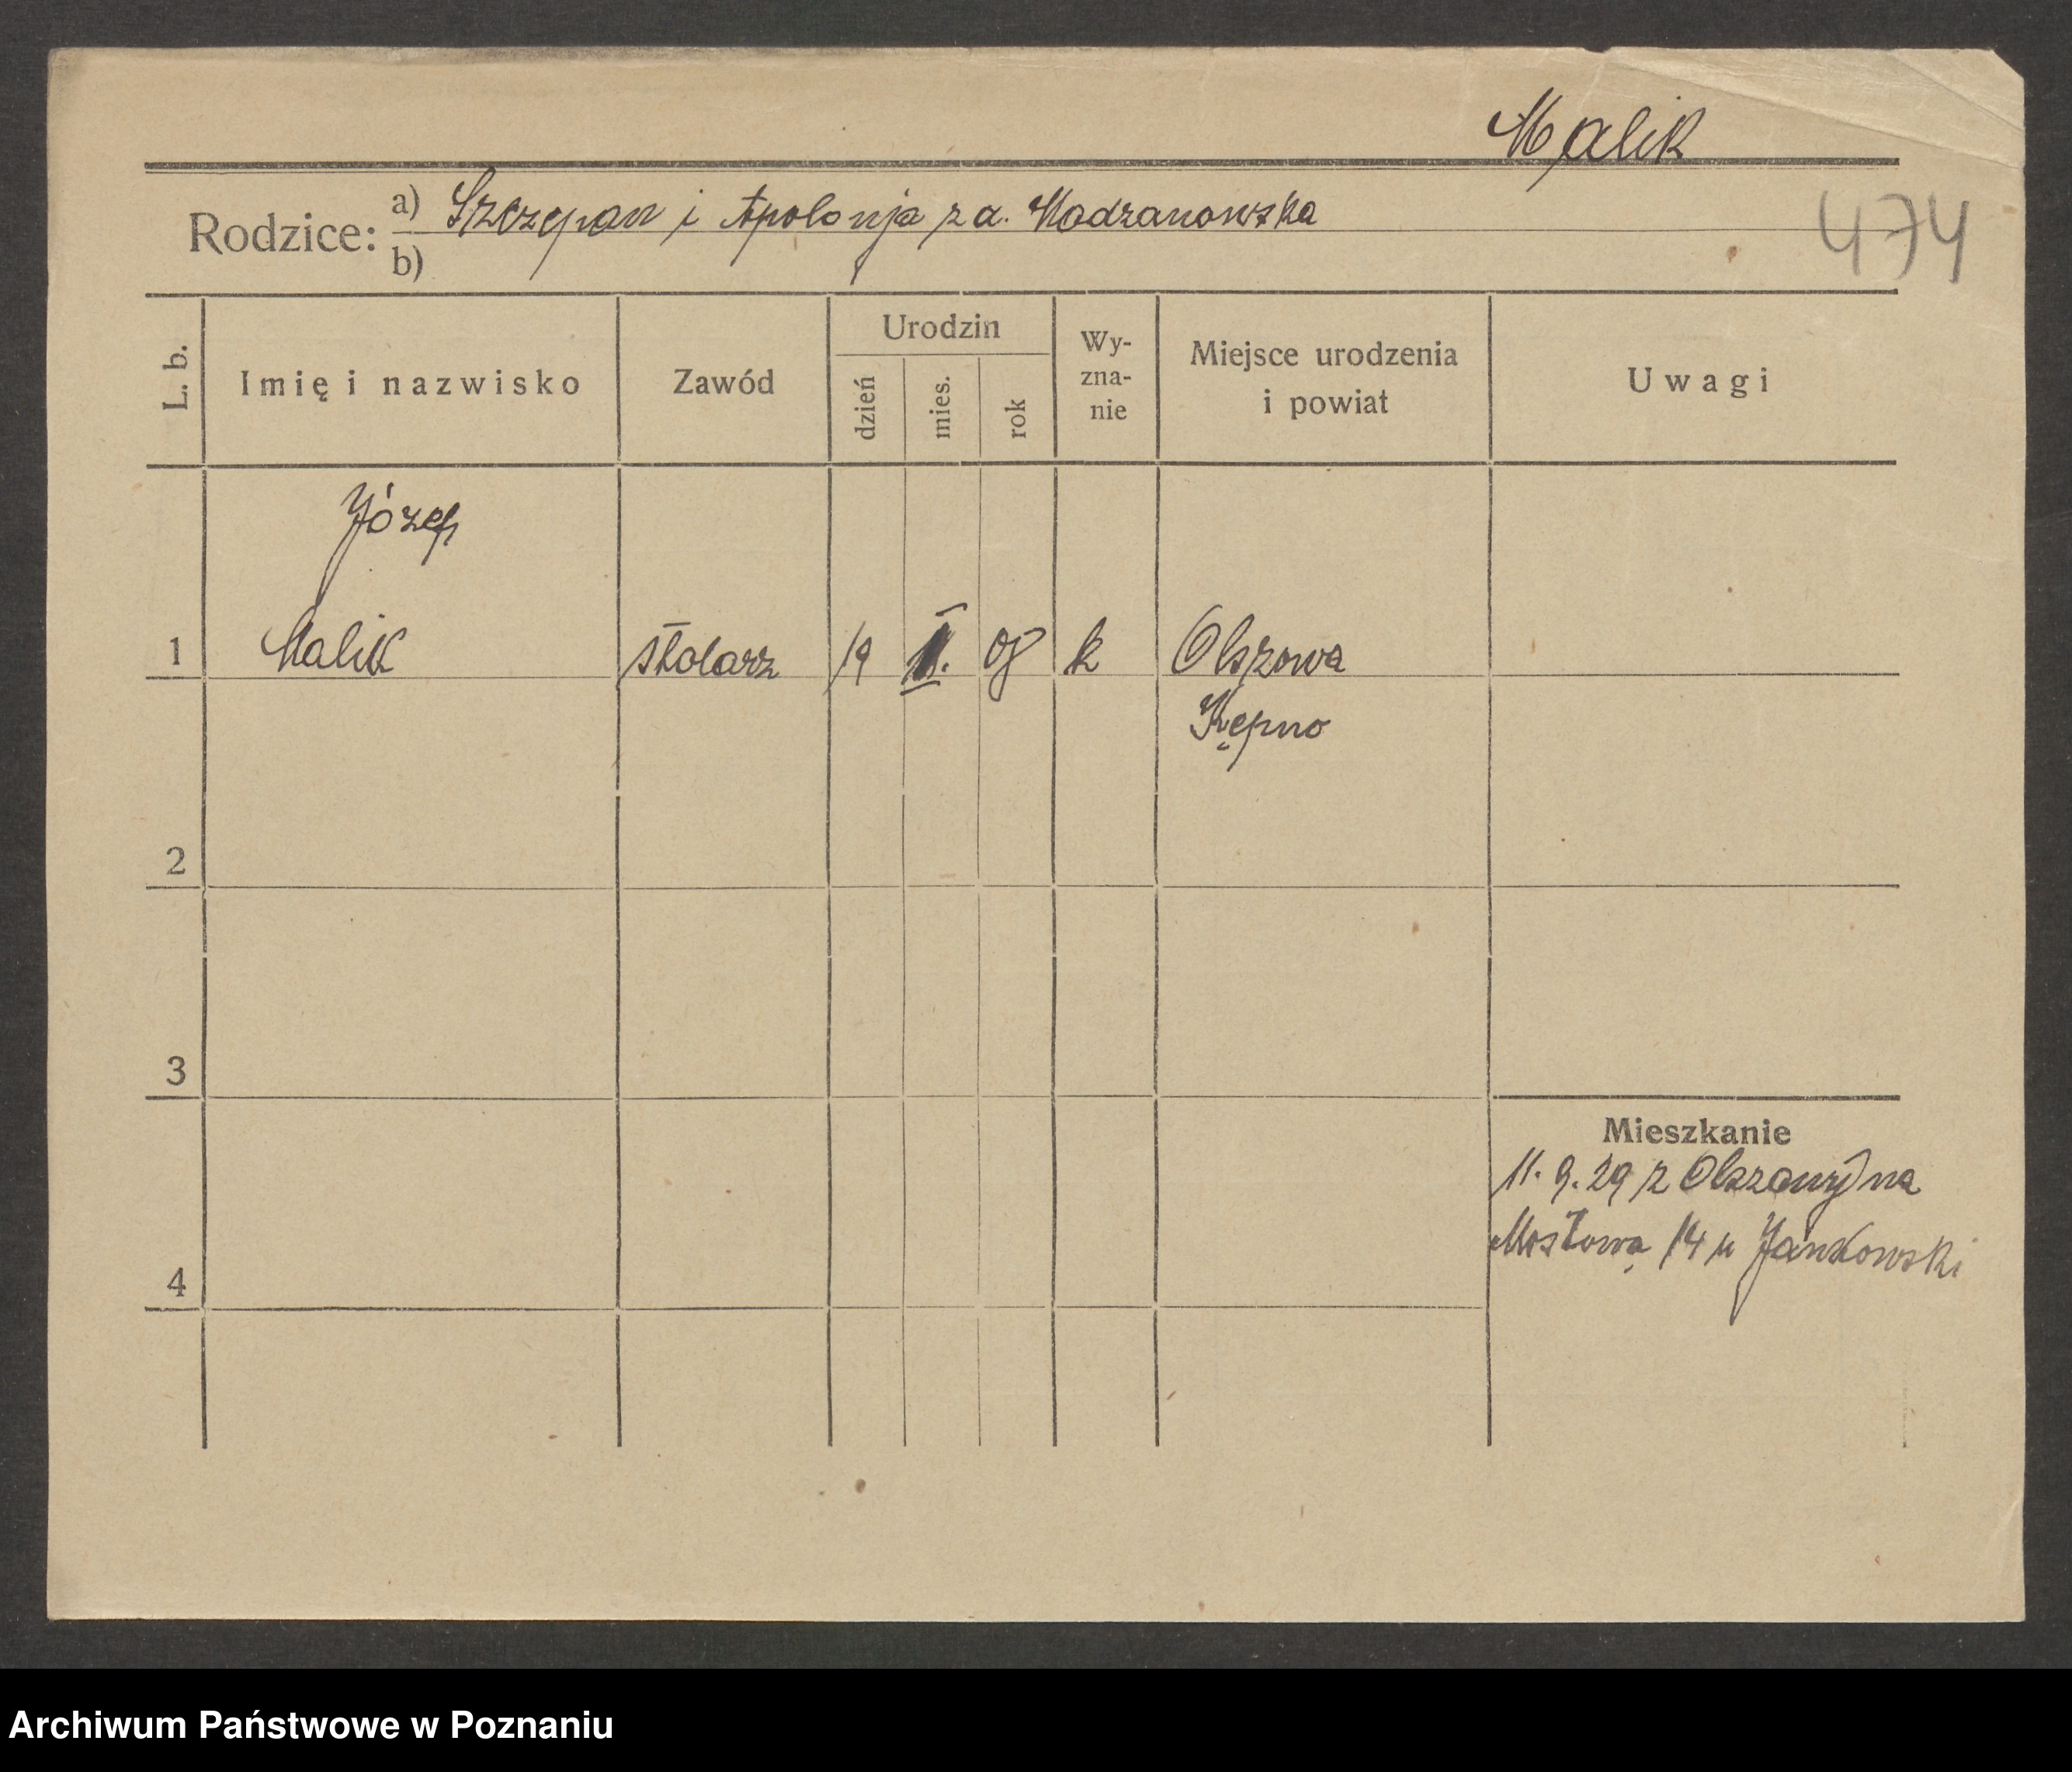 Malik
474
Rodzice: a) Szczepan i Apolonja z d. Madzanowska
b)
L. b. Imię i nazwisko Zawód Urodzin dzień mies. rok Wy-zna-nie Miejsce urodzenia i powiat Uwagi
Józef
1 Malik stolarz 19 II. k Olszowa
Kępno
2
3
Mieszkanie
11. 9. 29 z Olszowy na
Mostową 14 u Jankowski
4
Archiwum Państwowe w Poznaniu